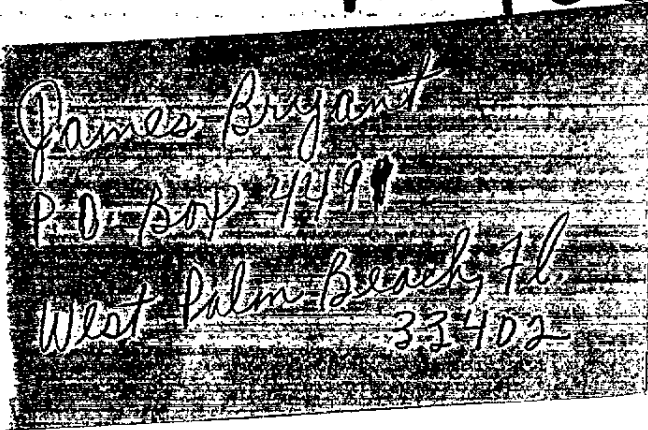 James Bryant
P.O. Box
West Palm Beach, Fl.
33402